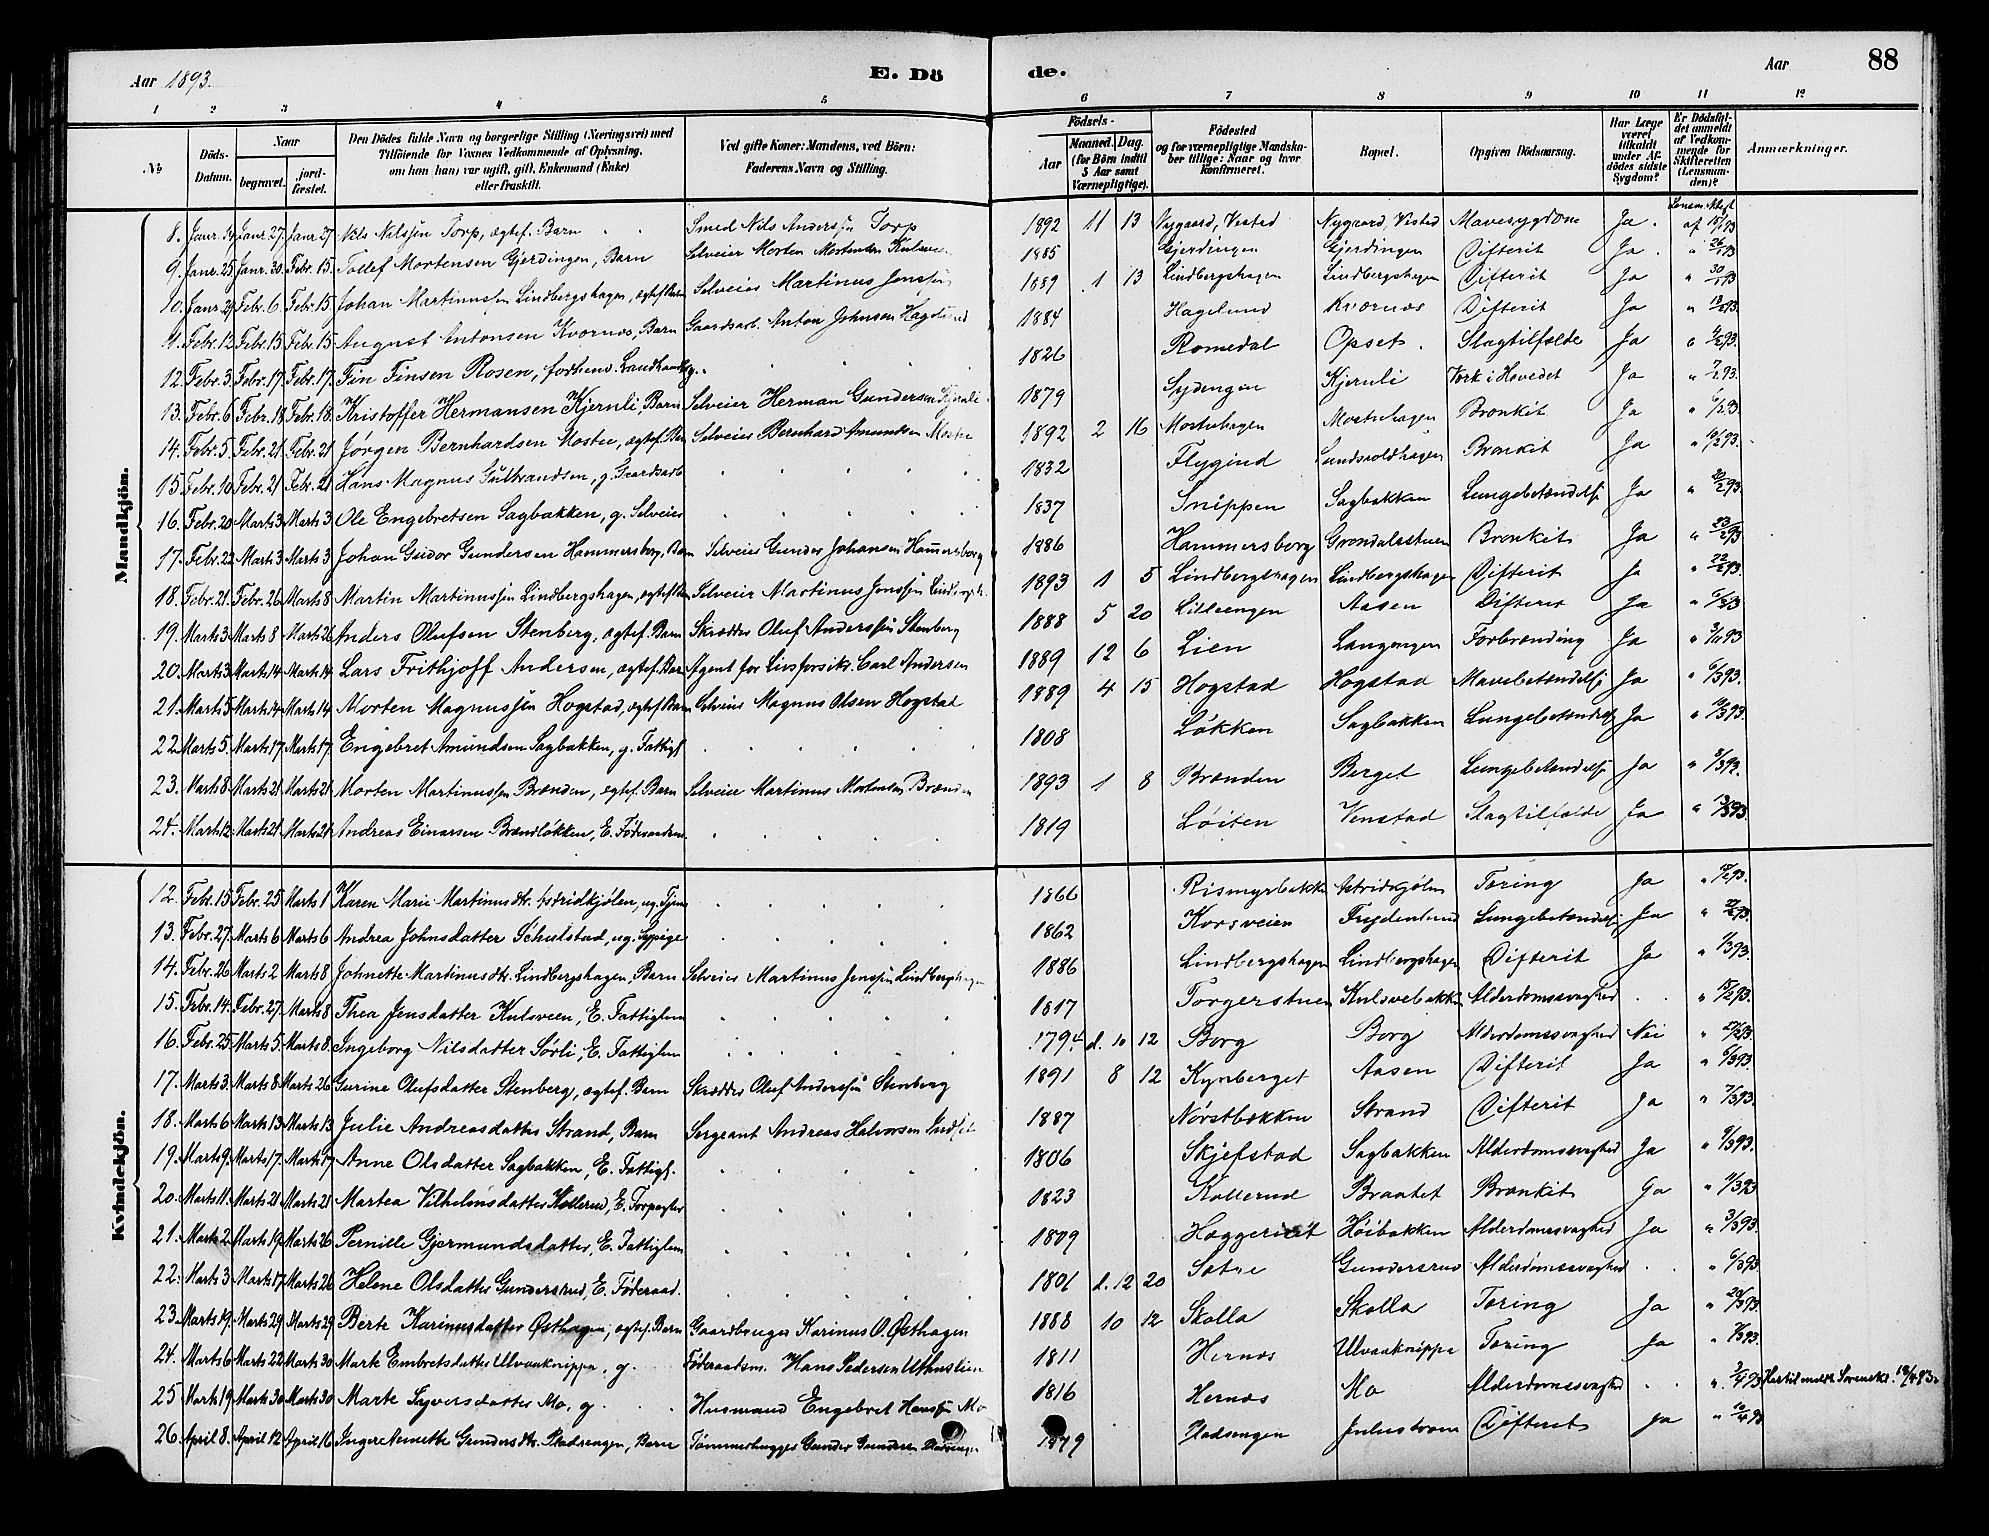 Aar 1893.
E. Dö
de.
Aar
88
1 2 3 4 5 6 7 8 9 10 11 12
№
Döds-Datum.
Naar
begravet.
jordfæstet.
Den Dödes fulde Navn og borgerlige Stilling (Næringsvei) med Tilföiende for Voxnes Vedkommende af Oplysning, om han (hun) var ugift, gift, Enkemand (Enke) eller fraskilt.
Ved gifte Koner: Mandens, ved Börn: Faderens Navn og Stilling.
Födsels-
Aar
Maaned. Dag. (for Börn indtil 5 Aar samt Værnepligtige).
Födested og for værnepligtige Mandskaber tillige: Naar og hvor Konfirmeret.
Bopæl.
Opgiven Dödsaarsag.
Har Læge været tilkaldt under Afdödes sidste Sygdom?
Er Dödsfaldet anmeldt af Vedkommende for Skifteretten (Lensmanden)?
Anmærkninger.
Mandkjön.
8. Janr. Janr. 27. Janr. 27 Nils Nilssøn Torp, ægtef. Barn Smed Nils Anderssøn Torp 1892 11 13 Nygaard, Vestad Nygaard, Vestad Mavesygdom Ja.
9. Janr. 25 Janr. 30. Febr. 15. Tollef Mortensen Gjerdingen, Barn Selveier Morten Mortensen 1885 Gjerdingen Gjerdingen Difterit Ja.
10. Janr. 29 Febr. 6. Febr. 15. Johan Martinussøn Lindbergshagen, ægtef. Barn Selveier Martinus Jonssøn 1889 1 13 Lindbergshagen Lindbergshagen Difterit Ja
11. Febr. 12 Febr. 15 Febr. 15 August Antonsen Kvornæs, Barn Gaardsarb. Anton Johnsen Hagelund 1884 Hagelund Kvornæs Difterit Ja
12. Febr. 3. Febr. 17. Febr. 17. Fin Finsen Rosen, forhenv. Landhandl. 1826 Romedal Opset. Slagtilfælde Ja
13. Febr. 6 Febr. 18 Febr. 18. Kristoffer Hermansen Kjernli, Barn Selveier Herman Gundersen Kjernli 1879 Sydengen Kjernli Værk i Hovedet Ja 7/2 93.
14. Febr. 5 Febr. 21 Febr. 21 Jørgen Bernhardsen Mostue, ægtef. Barn Selveier Bernhard Amundsen Mostue 1892 2 16 Mostuehagen Mostuehagen Bronkit Ja 6/2 93.
15. Febr. 10 Febr. 21 Febr. 21 Hans Magnus Gulbrandsen, g. Gaardsarb. 1832 Flygind Sundsvoldhagen Bronkit Ja
16. Febr. 20 Marts 3 Marts 3 Ole Engebretsen Sagbakken, g. Selveier 1837 Snippen Sagbakken Lungebetændelse Ja 20/2 93.
17. Febr. 22 Marts 3 Marts 3 Johan Gudor Gundersen Hammersborg, Barn Selveier Gunder Johansen Hammersborg 1886 Hammersborg Grøndalsstuen Bronkit Ja 23/2 93
18. Febr. 21. Febr. 26 Marts 8 Martin Martinussøn Lindbergshagen, ægtef. Barn Selveier Martinus Jonssøn Lindbergsh. 1893 1 5 Lindbergshagen Lindbergshagen Difterit Ja 22/2 93.
19. Marts 3. Marts 8 Marts 26 Anders Olufsen Stenberg, ægtef. Barn Skrædder Oluf Anderssøn Stenberg 1888 5 20 Lilleengen Aasen Difterit Ja 6/3 93
20. Marts 3. Marts 14 Marts 14. Lars Frithjoff Andersen, ægtef. Barn Agent for Livsforsikr. Carl Andersen 1889 12 6 Lien Langengen Forbrænding Ja
21. Marts 5 Marts 14 Marts 14 Morten Magnussøn Hogstad, ægtef. Barn Selveier Magnus Olsen Hogstad 1889 4 15 Hogstad Hogstad Mavebetændelse Ja 6/3 93.
22. Marts 5. Marts 17 Marts 17. Engebret Amundsen Sagbakken, g. Fattigl. 1808 Løkken Sagbakken Lungebetændelse Ja 10/3 93.
23. Marts 8 Marts 21 Marts 21 Morten Martinussøn Brænden, ægtef. Barn Selveier Martinus Mortensen Brænden 1893 1 8 Brænden Berget Lungebetændelse Ja 8/3 93.
24. Marts 12. Marts 21 Marts 21 Andreas Einarsen Brændløkken, E. Føderaadsm. 1819 Løiten Venstad Slagtilfælde Ja 13/3 93
Kvindekjön.
12. Febr. 15 Febr. 25 Marts 1 Karen Marie Martinusdtr. Astridkjølen, ug. Tjen. 1866 Rismyrbakk. Astridkjølen Tæring Ja
13. Febr. 27. Marts 6 Marts 6 Andrea Johnsdatter Schulstad, ug. Sypige 1862 Korsveien Frydenlund Lungebetændelse Ja
14. Febr. 26 Marts 2 Marts 8 Johnette Martinusdtr. Lindbergshagen, Barn Selveier Martinus Jonssøn Lindbergshagen 1886 Lindbergshagen Lindbergshagen Difterit Ja 1/3 93.
15. Febr. 14. Febr. 27 Marts 8 Thea Jensdatter Kulsveen, E. Fattiglem 1817 Torgerstuen Kulsvebakken Alderdomssvaghed 15/2 93.
16. Febr. 25 Marts 5 Marts 8. Ingeborg Nilsdatter Sørli, E. Fattiglem 1794. d. 10 12 Borg Borg Alderdomssvaghed Nei 27/2 93
17. Marts 3. Marts 8. Marts 26 Gurine Olufsdatter Stenberg, ægtef. Barn Skrædder Oluf Anderssøn Stenberg 1891 8 12 Kynberget Aasen Difterit Ja 6/3 93.
18. Marts 6 Marts 13 Marts 13 Julie Andreasdatter Strand, Barn Sergeant Andreas Halvorsen 1887 Nørstbækken Strand Difterit Ja 7/3 93.
19. Marts 9. Marts 17. Marts 17 Anne Olsdatter Sagbakken, E. Fattigl. 1806 Skjefstad Sagbakken Alderdomssvaghed Ja 9/3 93.
20. Marts 11. Marts 21 Marts 21 Martea Vilhelmsdatter Kollerud, E. Forpagter 1823 Kollerud Braatet Bronkit Ja 11/3 93
21. Marts 2 Marts 19. Marts 26 Pernille Gjermundsdatter, E. Fattiglem 1809 Høibakken Alderdomssvaghed Ja 3/3 93.
22. Marts 3 Marts 17 Marts 26 Helene Olsdatter Gundersrud, E. Føderaad. 1801 d. 12 20 Sætre Gundersrud Alderdomssvaghed 6/3 93
23. Marts 19. Marts 29 Marts 29 Berte Karinusdatter Østhagen, ægtef. Barn Gaardbruger Karinus O. Østhagen 1888 10 12 Skolla Skolla Tæring Ja 20/3 93.
24. Marts 6 Marts 22 Marts 30 Marte Embretsdatter Ulvaaknippa, g. Føderaadsm. Hans Pedersen 1811 Hernæs Ulvaaknippa Tæring Ja
25 Marts 19 Marts 30 Marts 30 Marte Syversdatter Mo, g. Husmand Engebret Hanssøn Mo 1816 Hernæs Mo Alderdomssvaghed
26. April 8. April 12 April 16 Inger Annette Gundersdtr. Pladsengen, Barn Tømmerhugger Gunder Gundersen 1879 Pladsengen Julustrøm Difterit Ja